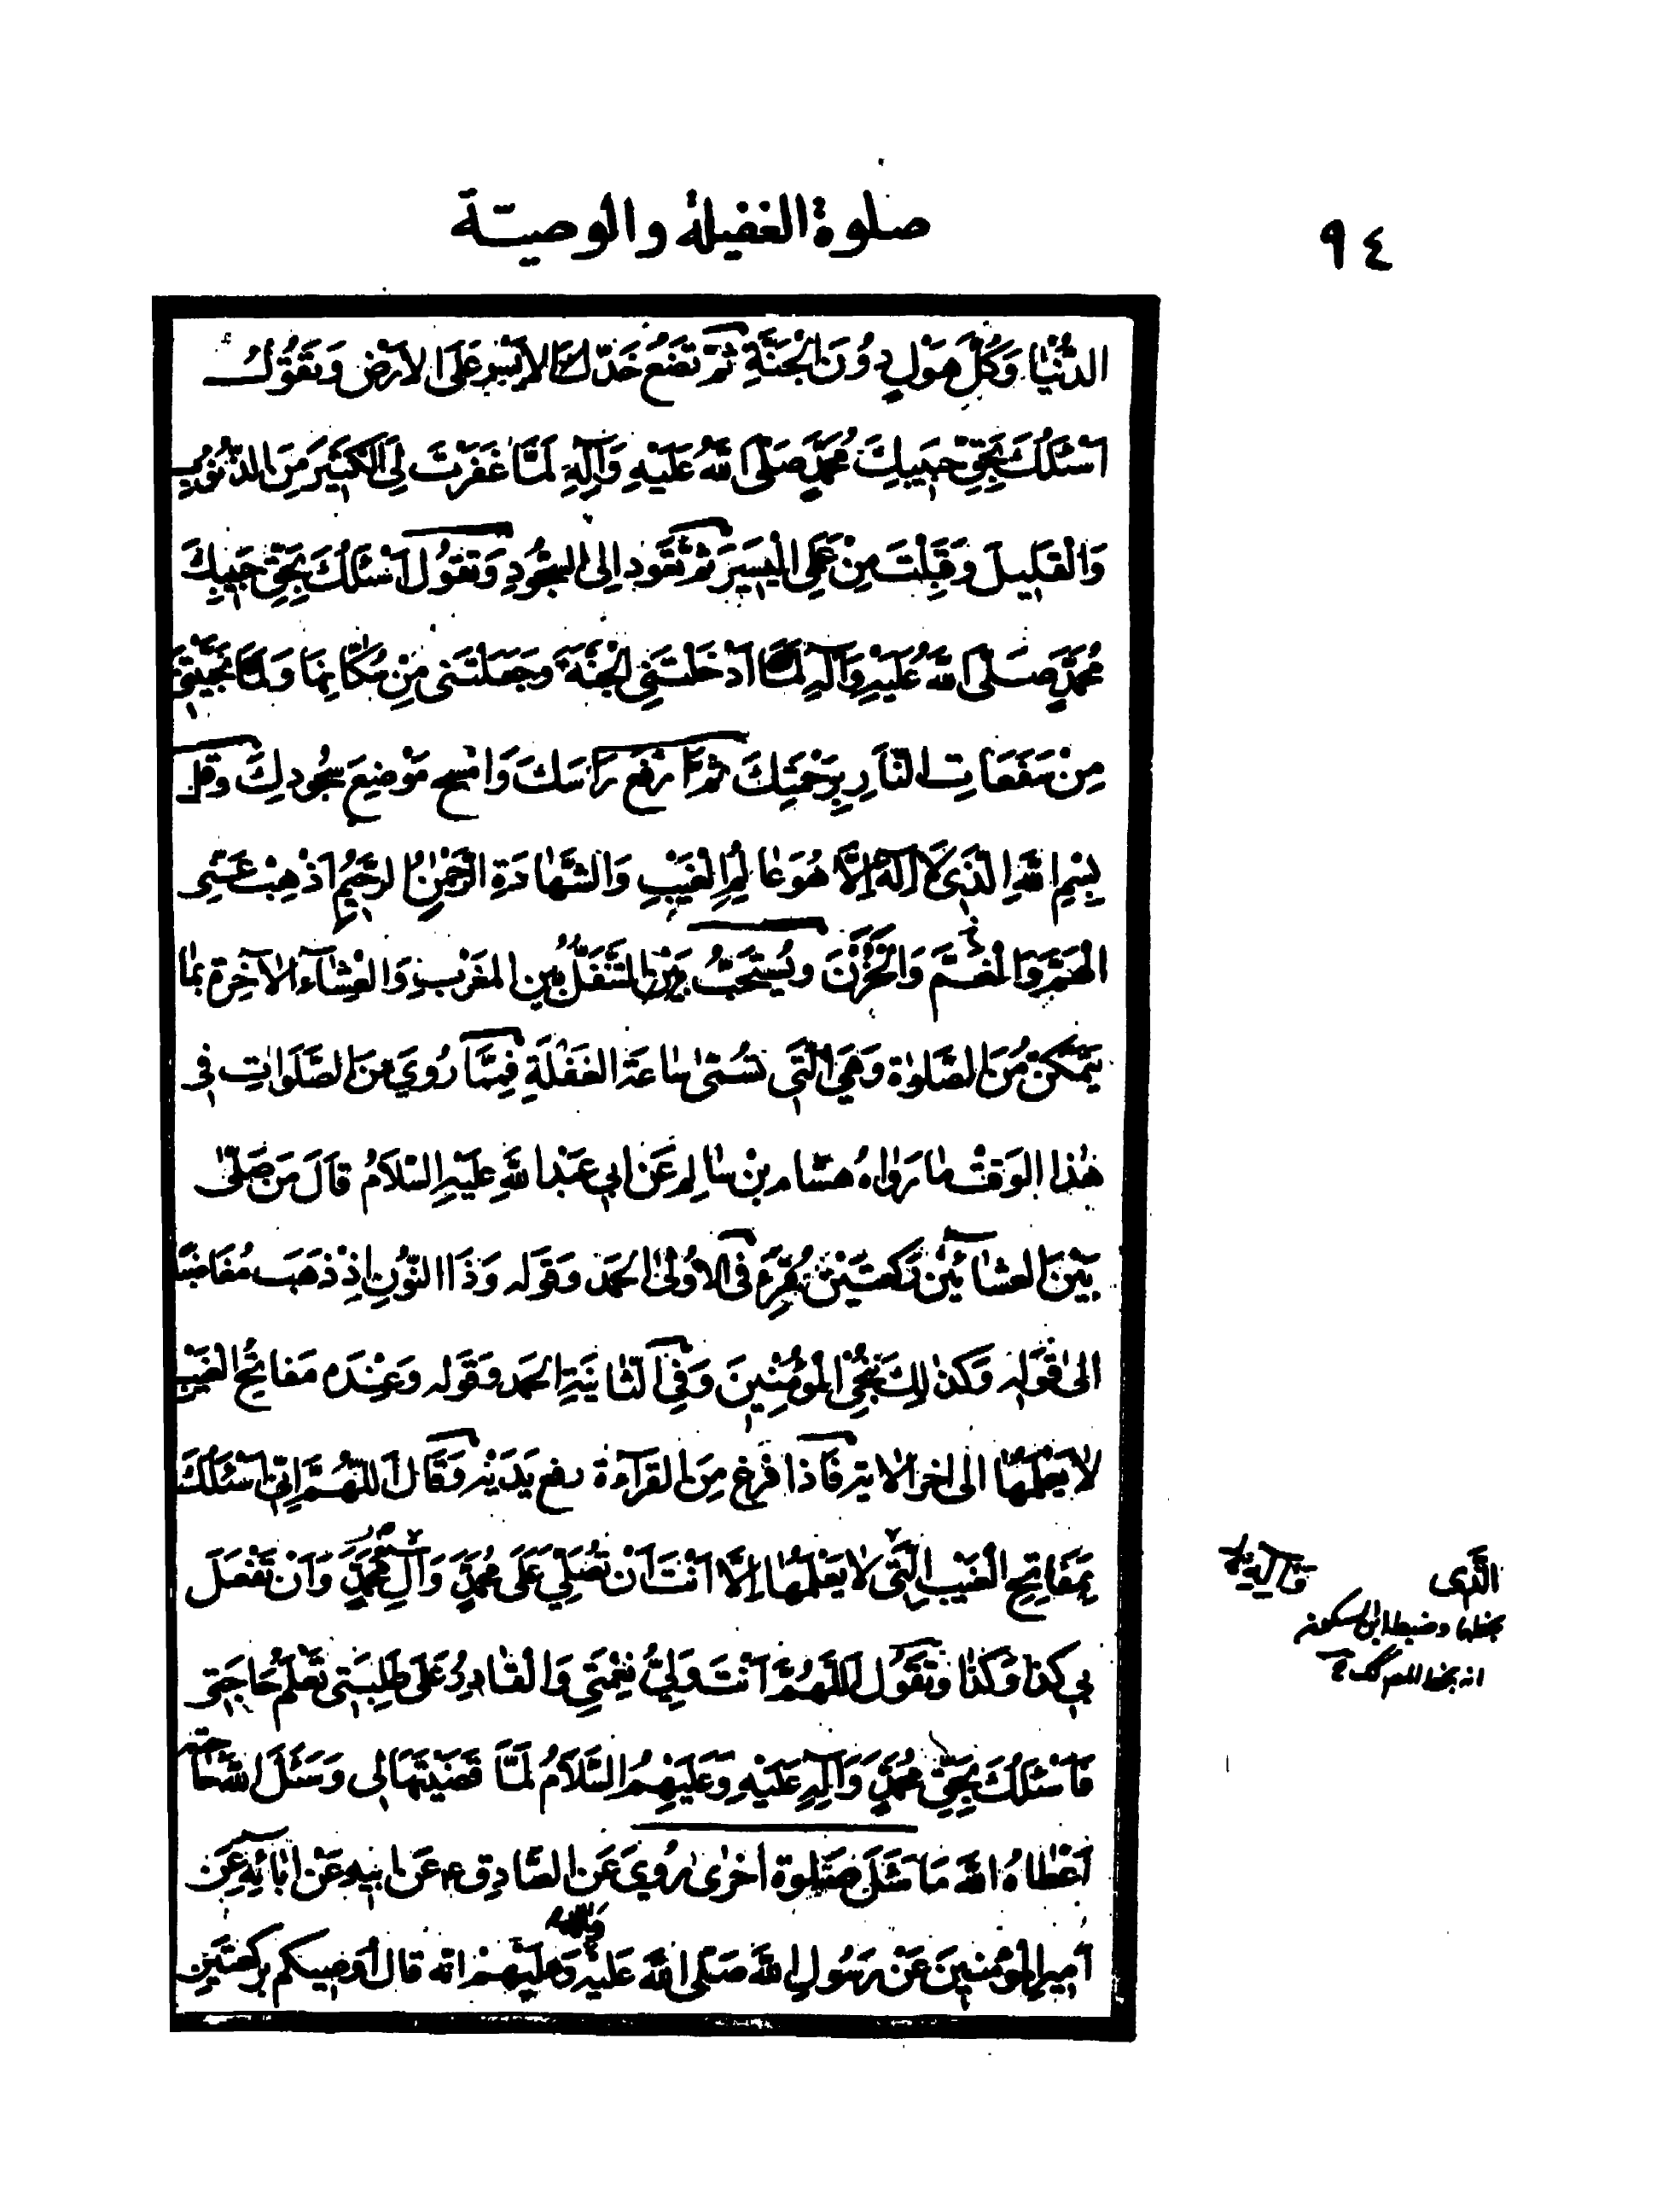 ٩٤
صلوة الغفيلة والوصيّة
الدُّنْيٰا وَكُلَّ هَوْلٍ دُونَ الْجَنَّةِ ثُمَّ تَضَعُ خَدَّكَ الاَيْسَرَ عَلَى الاَرْضِ وَتَقُولُ
اَسْئَلُكَ بِحَقِّ حَبيبِكَ مُحَمَّدٍ صَلَّى اللّٰهُ عَلَيْهِ وَآلِهِ لَمَّا غَفَرْتَ لِيَ الْكَثيرَ مِنَ الذُّنُوبِ
وَالْقَليلَ وَقَبِلْتَ مِنْ عَمَلِيَ الْيَسيرَ ثُمَّ تَعُود اِلَى السُّجُودِ وَتَقُولُ اَسْئَلُكَ بِحَقِّ حَبيبِكَ
مُحَمَّدٍ صَلَّى اللّٰهُ عَلَيْهِ وَآلِهِ لَمَّا اَدْخَلْتَنِي الْجَنَّةَ وَجَعَلْتَنى مِنْ سُكّٰانِهٰا وَلَمَّا نَجَّيْتَنى
مِنْ سَفَعَاتِ النّٰارِ بِرَحْمَتِكَ ثُمَّ ارْفَع رَاسَكَ وَامْسَح مَوْضِعَ سُجُودِكَ وَقُل
بِسْمِ اللّٰهِ الَّذى لاٰ اِلٰهَ اِلاَّ هُوَ عٰالِمُ الْغَيْبِ وَالشَّهٰادَةِ الرَّحْمٰنُ الرَّحيمُ اَذْهِبْ عَنّى
الْهَمَّ وَالْغَمَّ وَالْحُزْنَ وَيُسْتَحَبُّ التَنَفُّلُ بَيْن المَغْرِبِ وَالْعِشٰاءِ الاٰخِرَةِ بِمٰا
يَتَمَكَّنُ مِنَ الصَّلوٰاةِ وَهِيَ الَّتي تُسَمّىٰ سٰاعَةَ الغَفْلَةِ فَمِمَّا رُوِيَ مِنَ الصَّلَوٰاتِ فى
هٰذا الوَقْتِ مٰا رَوٰاهُ هِشٰام بِنْ سٰالِم عَن ابي عَبْد اللّٰهِ عَلَيْهِ السَّلاَمُ قَالَ مَن صَلّىٰ
بَيْنَ العشٰائَيْنِ رَكعَتَيْنِ يَقْرَءُ في الاُولىٰ الحَمد وَقَوله وَذَا النُّونِ اِذْ ذَهَبَ مُغَاضِبًا
الىٰ قَوْلِه وَكَذٰلِكَ نُنْجِي الْمُؤْمِنينَ وَفِي الثّٰانِيَةِ الحَمد وَقَوْله وَعِنْدَه مَفَاتِحُ الْغَيْبِ
لاٰ يَعْلَمُهٰا الى اخر الايَة فَاذا فرغ مِنَ القِرَآءةِ رفع يَدَيْهِ وَقَالَ اللّٰهُمَّ اِنّى اَسْئَلُكَ
بِمَفَاتِحِ الْغَيْبِ الَّتى لاٰ يَعْلَمُهٰا اِلاَّ اَنْتَ اَنْ تُصَلِّيَ عَلَى مُحَمَّدٍ وَآلِ مُحَمَّدٍ وَاَنْ تَفْعَلَ
بي كَذٰا وَكَذٰا وَتَقُولُ اَللّٰهُمَّ اَنْتَ وَلِيُّ نِعْمَتي وَالْقٰادِرُ عَلَى طَلِبَتي تَعْلَمُ حٰاجَتى
فَاَسْئَلُكَ بِحَقِّ مُحَمَّدٍ وَآلِهِ عَلَيْهِ وَعَلَيْهِمُ السَّلاَمُ لَمَّا قَضَيْتَهٰا لى وَسَئَلَ اللّٰهَ حَاجته
اَعْطٰاهُ اللّٰه مَا سَئَلَ صَلوة اُخرٰى رُوِيَ عَن الصّٰادِق ع عَن اَبيهِ عَنْ اٰبٰائِهِ عَن
اَميرِ الْمُؤْمِنينَ عَنْ رَسُولِ اللّٰه صَلَّى اللّٰهُ عَلَيْهِ وَعَلَيْهِمْ انّه قالَ اُوصِيكم بركعَتَينِ
وَآلِه
الَّذى